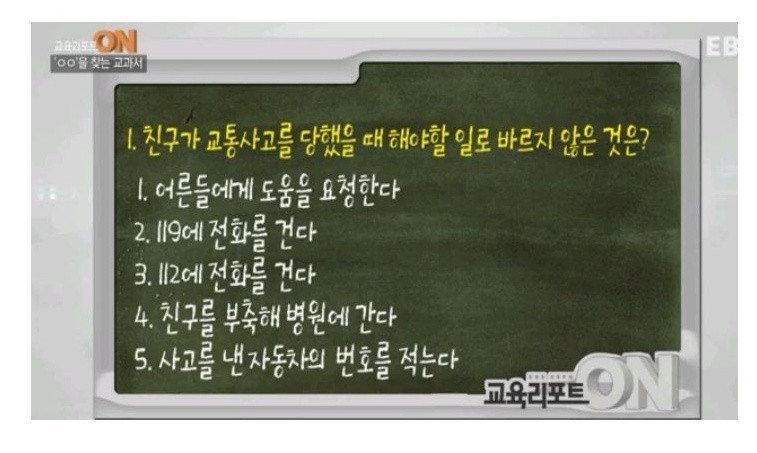 교육리포트ON
'ㅇㅇ'을 찾는 교과서
EB
1. 친구가 교통사고를 당했을 때 해야할 일로 바르지 않은 것은?
1. 어른들에게 도움을 요청한다
2. 119에 전화를 건다
3. 112에 전화를 건다
4. 친구를 부축해 병원에 간다
5. 사고를 낸 자동차의 번호를 적는다
교육리포트 ON